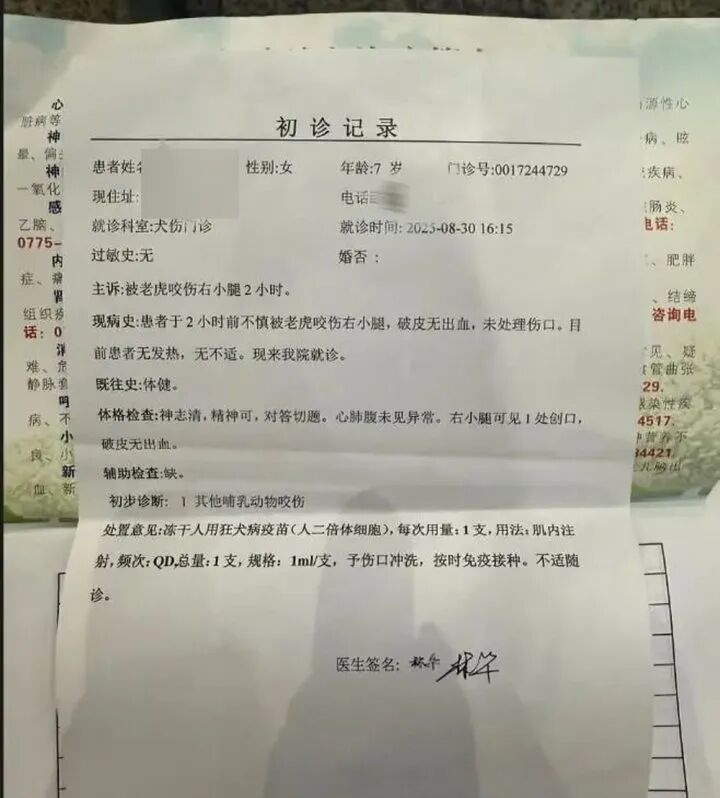 初诊记录
患者姓名 性别:女 年龄:7 岁 门诊号:0017244729
现住址:
电话
就诊科室:犬伤门诊 就诊时间: 2025-08-30 16:15
过敏史:无 婚否 :
主诉:被老虎咬伤右小腿 2 小时。
现病史:患者于 2 小时前不慎被老虎咬伤右小腿，破皮无出血，未处理伤口。目
前患者无发热，无不适。现来我院就诊。
既往史:体健。
体格检查:神志清，精神可，对答切题。心肺腹未见异常。右小腿可见 1 处创口，
破皮无出血。
辅助检查:缺。
初步诊断: 1 其他哺乳动物咬伤
处置意见:冻干人用狂犬病疫苗(人二倍体细胞)，每次用量:1 支，用法:肌内注
射，频次:QD,总量:1 支，规格：1ml/支，予伤口冲洗，按时免疫接种。不适随
诊。
医生签名:
心
脏病等
神
晕、偏
神
一氧化
感
乙脑、
0775-
内
症、
组织
话：0
难、
静脉
病、不
小
良、小
新
血、新
源性心
病、眩
疾病、
肠炎、
电话:
、肥胖
、结缔
咨询电
见、疑
管曲张
29.
感染性疾
4517.
种营养不
34421.